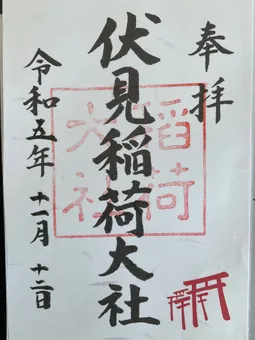 奉拝
伏見稲荷大社
稲荷
大社
令和五年 十一月 十二日